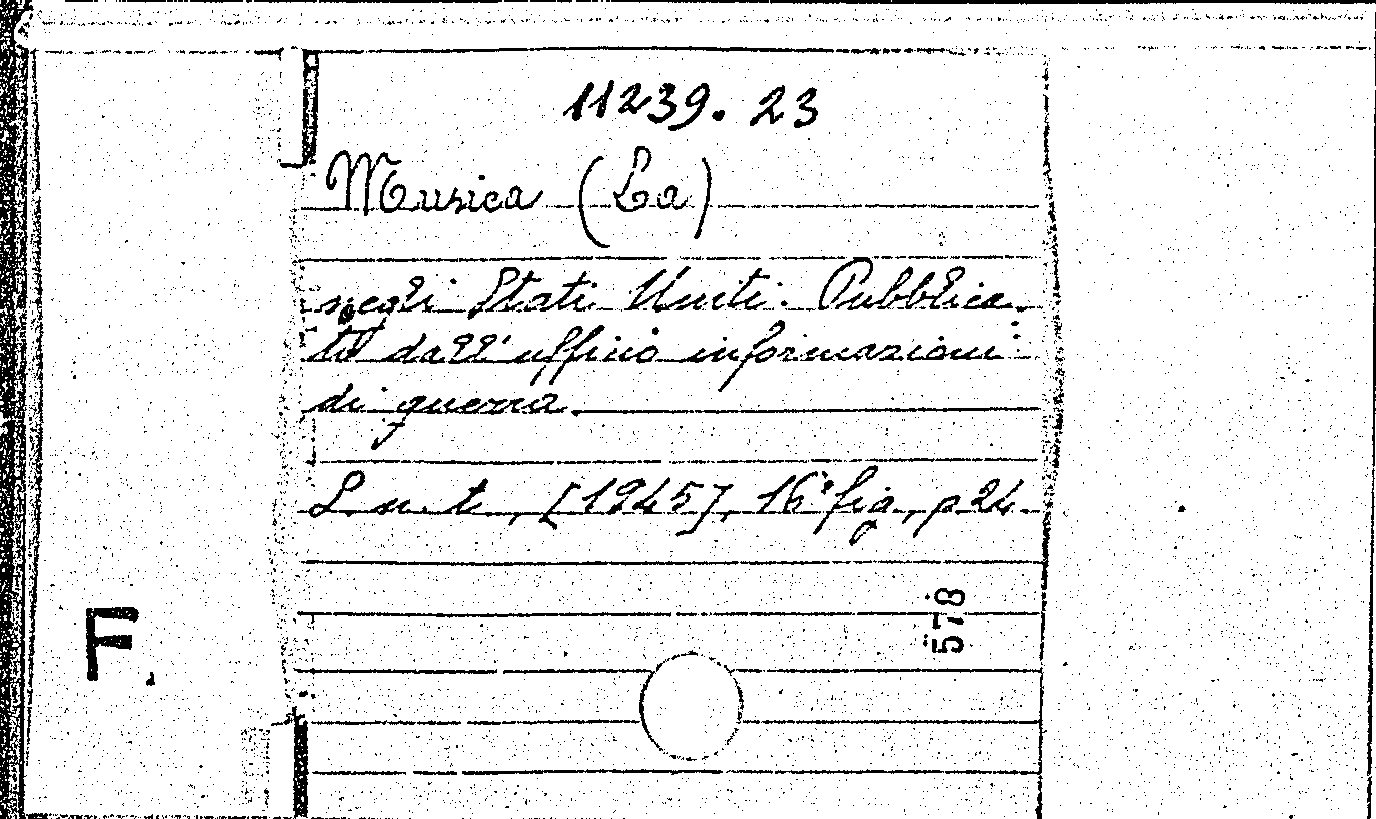 11239. 23
Musica (La)
negli Stati Uniti. Pubblica
to dall' ufficio informazioni
di guerra.
S. n. t., [1945], 16° fig., p 24.
578
F.